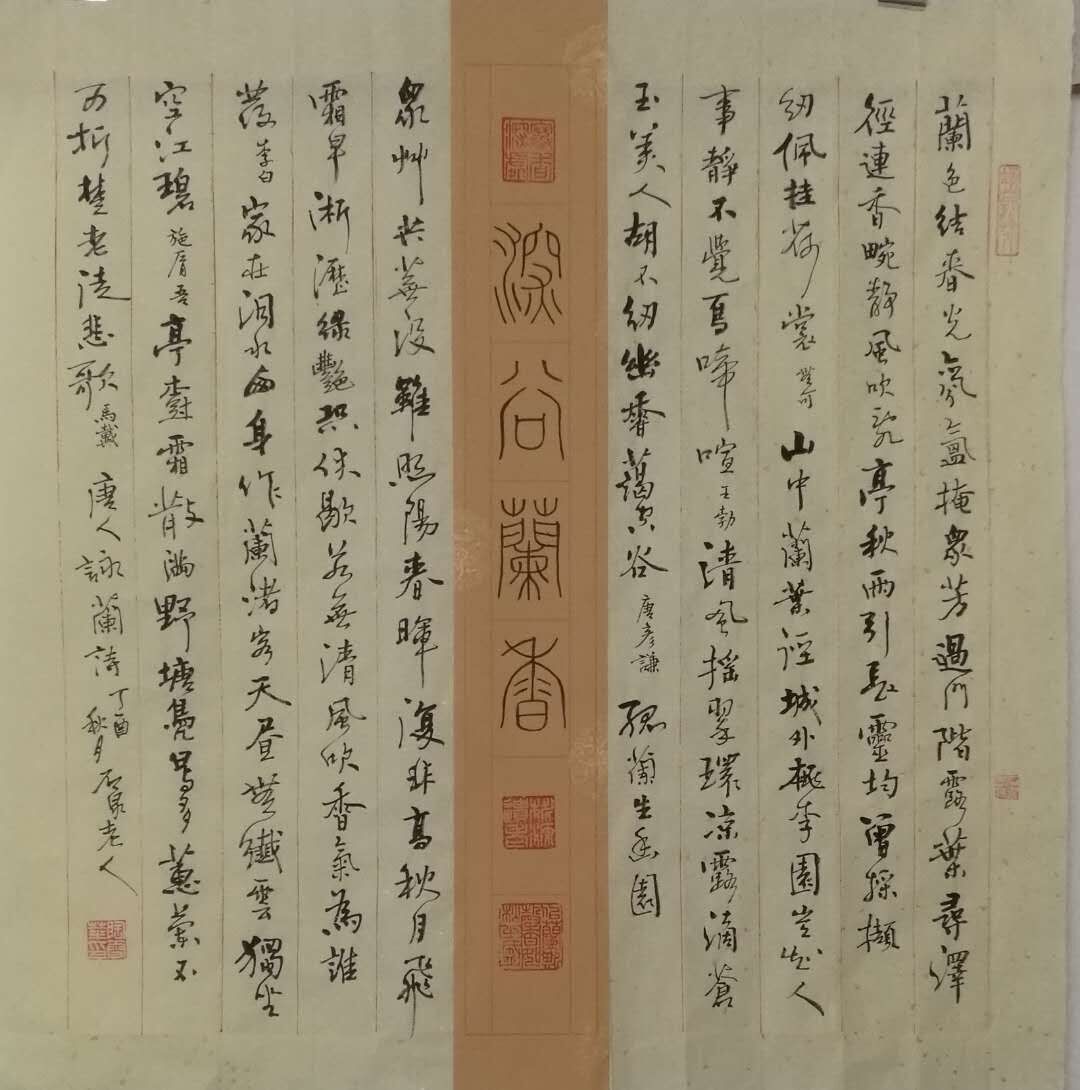 蘭色結春光氛氳掩衆芳過門階露葉尋澤
徑連香畹靜風吹亂亭秋雨引長靈均曾採擷
紉佩挂荷裳 無可 山中蘭葉徑城外桃李園豈知人
事靜不覺鳥啼喧 王勃 清風搖翠環涼露滴蒼
玉美人胡不紉幽香藹空谷 唐彥謙 孤蘭生幽園
深谷蘭香
衆艸共蕪沒雖照陽春暉復非高秋月飛
霜早淅瀝綠艷恐休歇若無清風吹香氣為誰
發 李白 家在洞水西身作蘭渚客天晝無纖雲獨坐
空江碧 施肩吾 亭 霜散滿野塘鳧鳥多蕙蘭不
可折楚老徒悲歌 馬戴 唐人詠蘭詩 丁酉秋月 老人